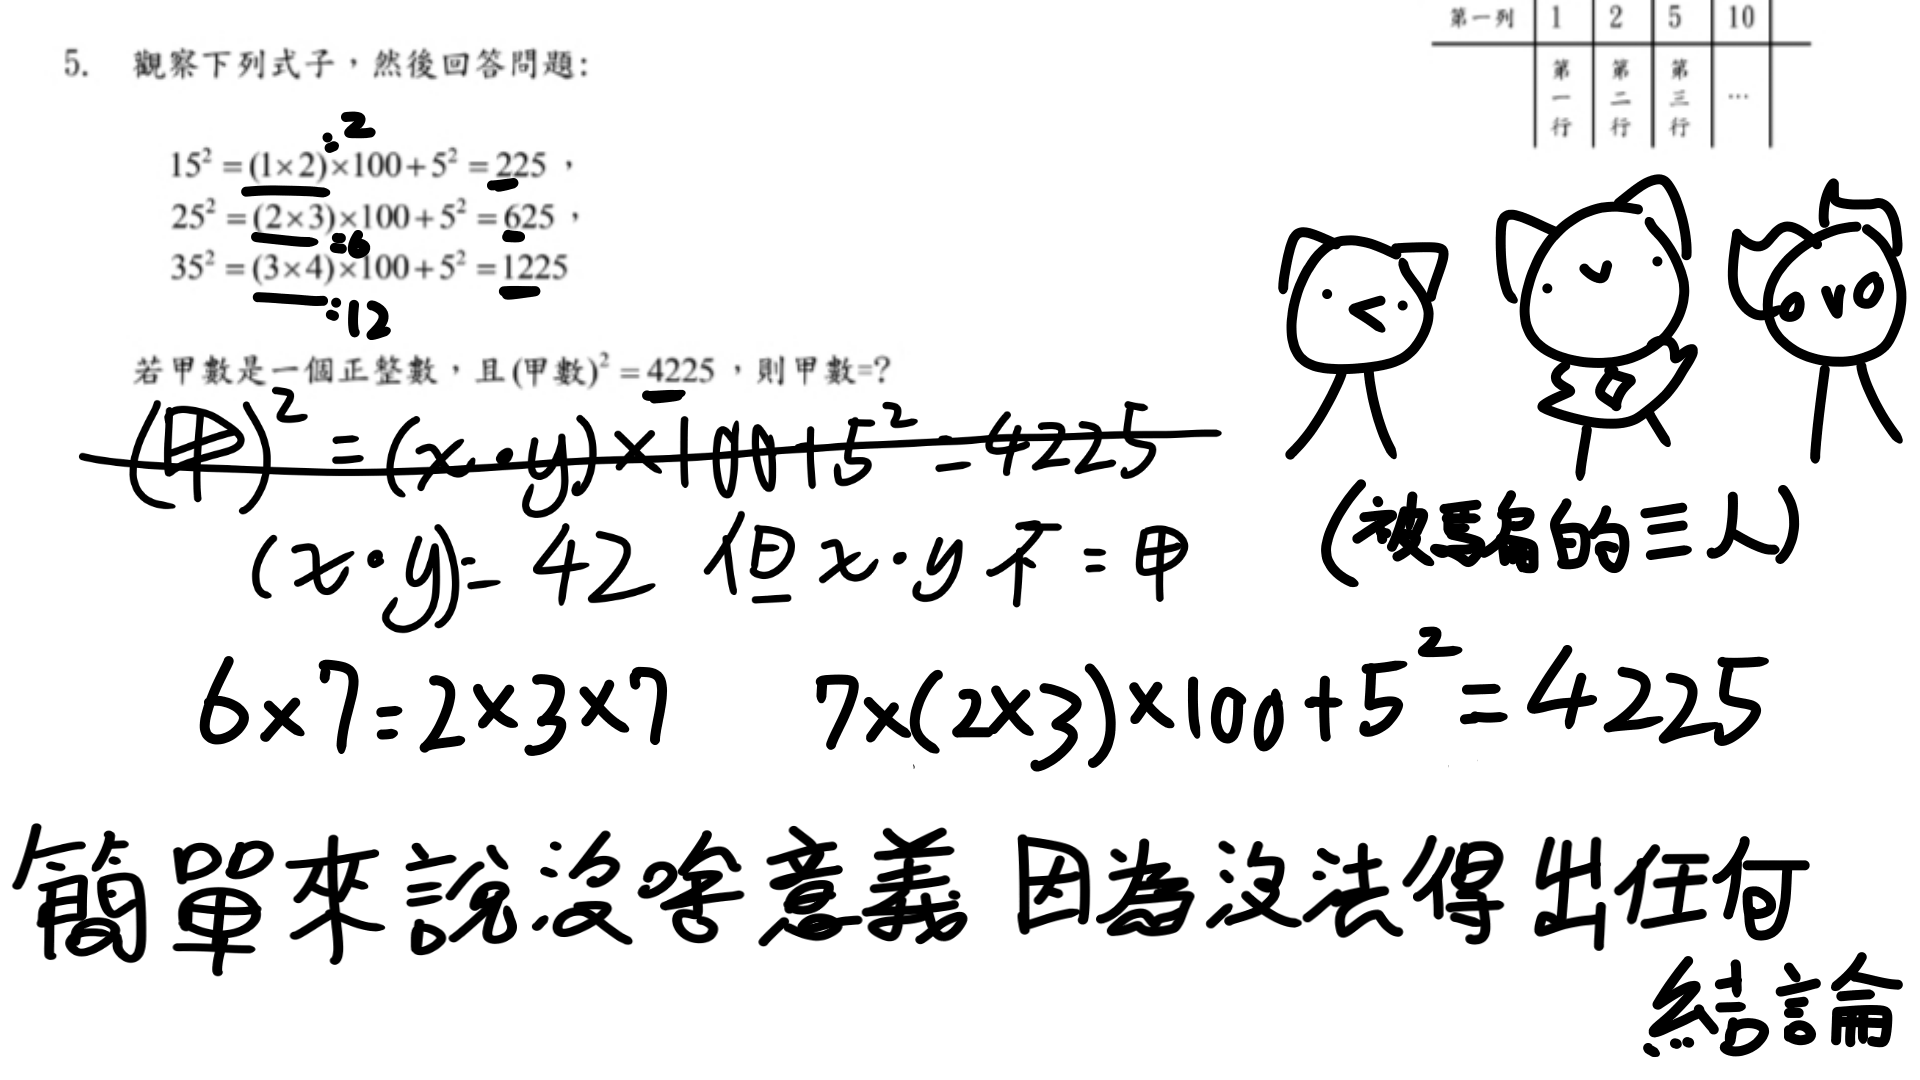 第一列 1 2 5 10
第一行 第二行 第三行 …
5. 觀察下列式子，然後回答問題:
15² = (1×2)×100+5² = 225，
:2
25² = (2×3)×100+5² = 625，
:6
35² = (3×4)×100+5² = 1225
:12
若甲數是一個正整數，且(甲數)² = 4225，則甲數=?
(甲)² = (x·y)×100+5² = 4225
(x·y)= 42 但 x·y 不 = 甲
(被騙的三人)
6×7=2×3×7 7×(2×3)×100+5²=4225
簡單來說沒啥意義 因為沒法得出任何
結論